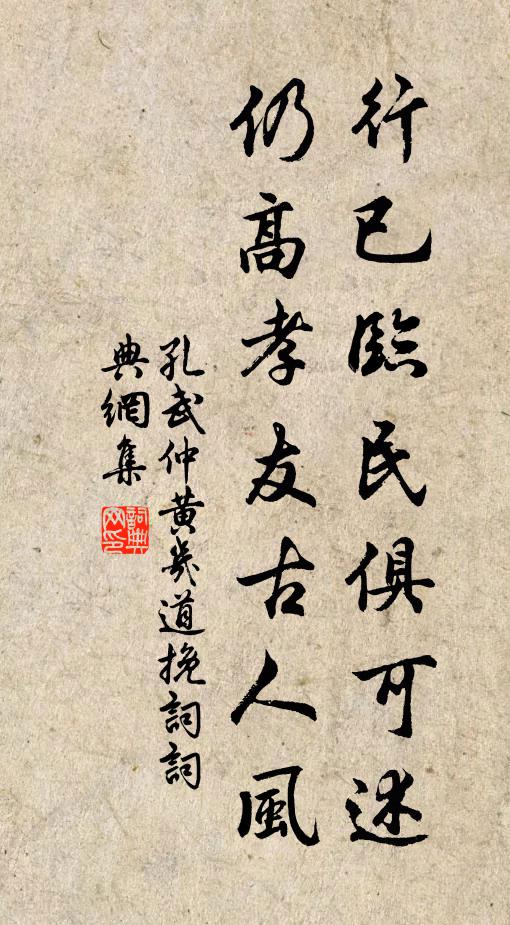 行已臨民俱可述
仍高孝友古人風
孔武仲黄幾道挽詞詞
典網集
詞典網印